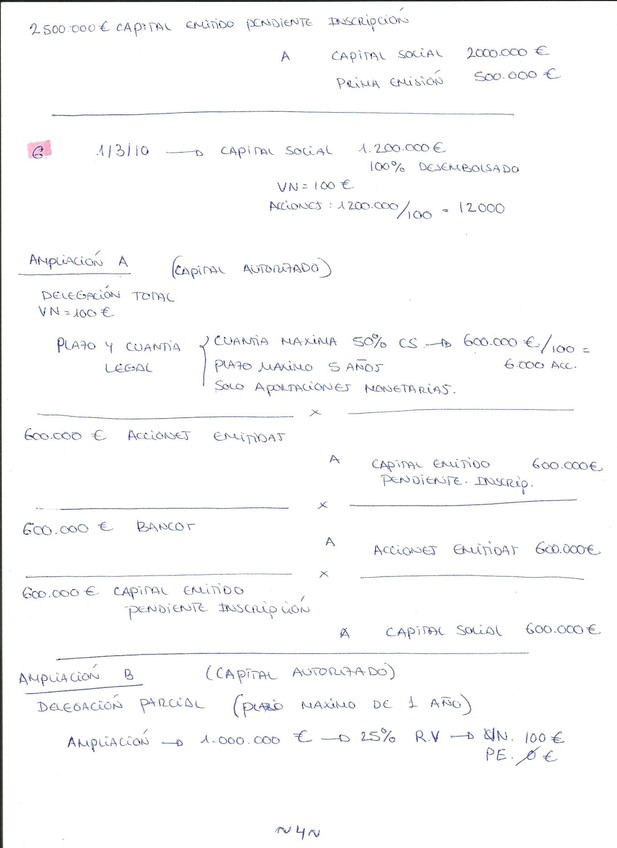 2500.000 € CAPITAL EMITIDO PENDIENTE INSCRIPCIÓN
A CAPITAL SOCIAL 2000.000 €
PRIMA EMISIÓN 500.000 €
6 1/3/10 → CAPITAL SOCIAL 1.200.000 €
100% DESEMBOLSADO
VN = 100 €
ACCIONES : 1200.000/100 = 12000
AMPLIACIÓN A (CAPITAL AUTORIZADO)
DELEGACIÓN TOTAL
VN = 100 €
PLAZO Y CUANTIA LEGAL { CUANTIA MAXIMA 50% CS → 600.000 €/100 =
PLAZO MAXIMO 5 AÑOS 6.000 ACC.
SOLO APORTACIONES MONETARIAS.
x
600.000 € ACCIONES EMITIDAS
A CAPITAL EMITIDO 600.000€
PENDIENTE. INSCRIP.
x
600.000 € BANCOS
A ACCIONES EMITIDAS 600.000€
x
600.000 € CAPITAL EMITIDO
PENDIENTE INSCRIPCIÓN
A CAPITAL SOCIAL 600.000€
AMPLIACIÓN B (CAPITAL AUTORIZADO)
DELEGACIÓN PARCIAL (PLAZO MAXIMO DE 1 AÑO)
AMPLIACIÓN → 1.000.000 € → 25% R.V → VN. 100 €
PE. 0 €
~4~